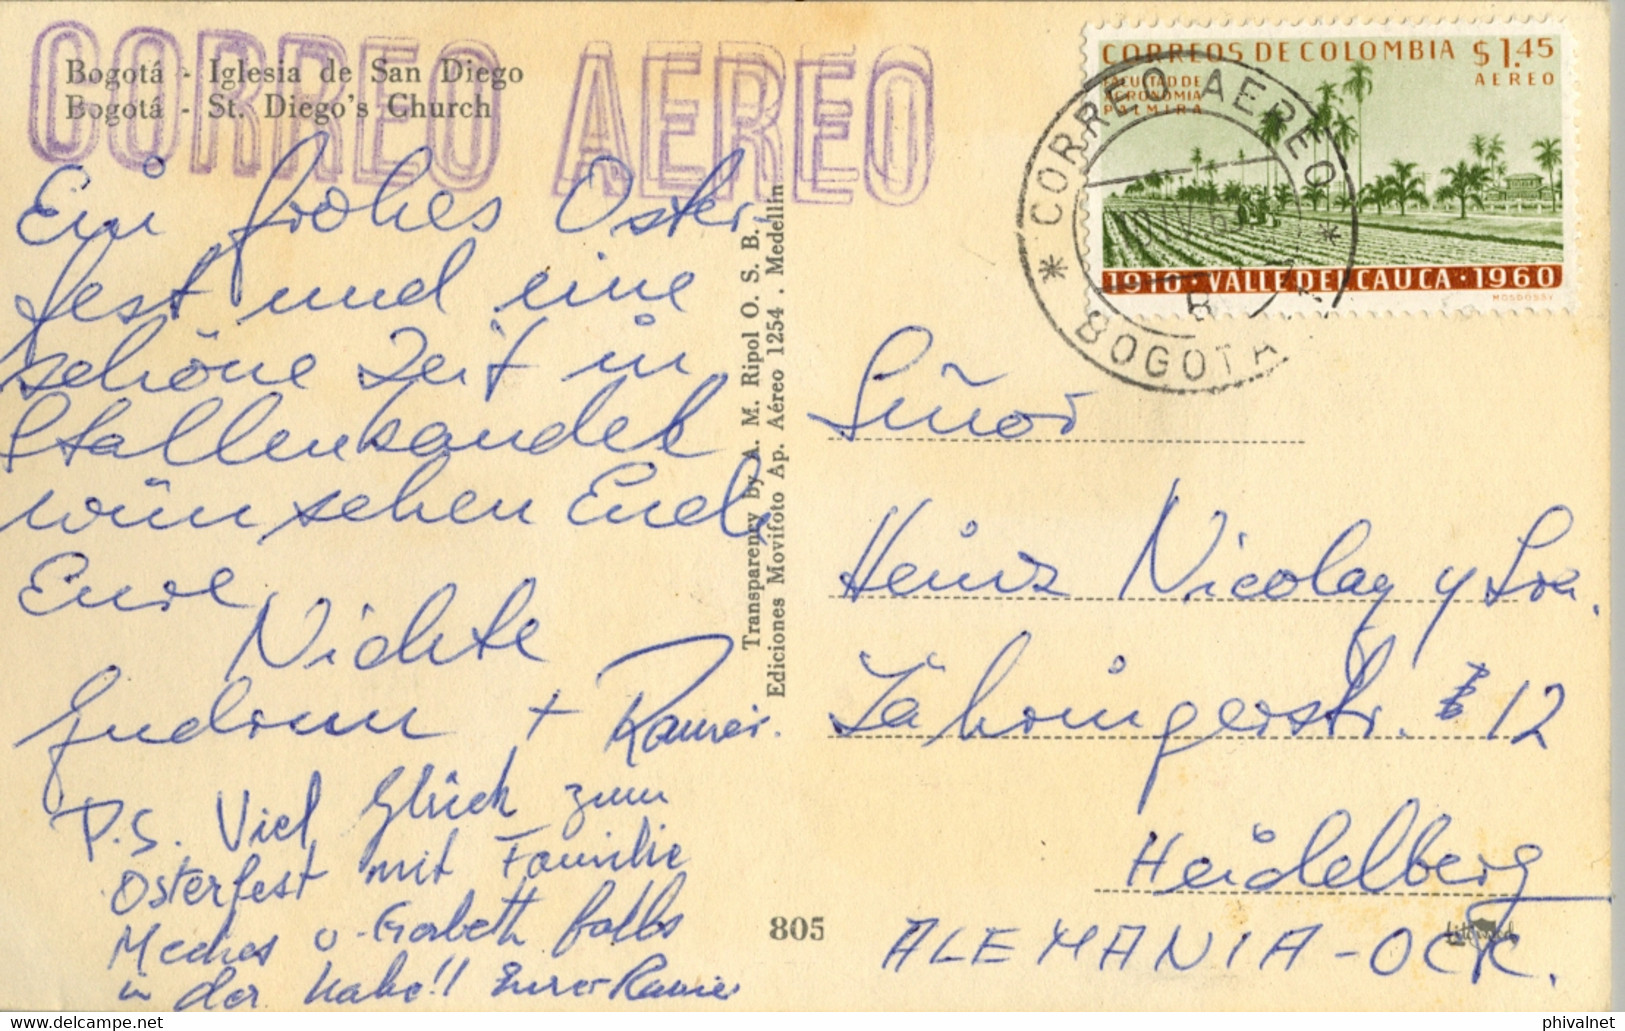 CORREO AEREO
Bogotá - Iglesia de San Diego
Bogotá - St. Diego's Church
Ein frohes Oster,
fest und eine
schöne Zeit in
Stallenkandel
wünschen Euch,
Eure
Nichte
Gudrun + Rainer.
P.S. Viel Glück zum
Osterfest mit Familie
Meches u. falls
in der Nähe!! Euer Rainer
Transparency by A. M. Ripol O. S. B.
Ediciones Movifoto Ap. Aéreo 1254 . Medellín
805
CORREOS DE COLOMBIA $1.45
AEREO
FACULTAD DE
AGRONOMIA
PALMIRA
1910 · VALLE DEL CAUCA · 1960
MOSDOSSY
* CORREO AEREO *
BOGOTA
Señor
Heinz Nicolay y Sra.
Zähringerstr. 12
Heidelberg
ALEMANIA-OCC.
phivalnet